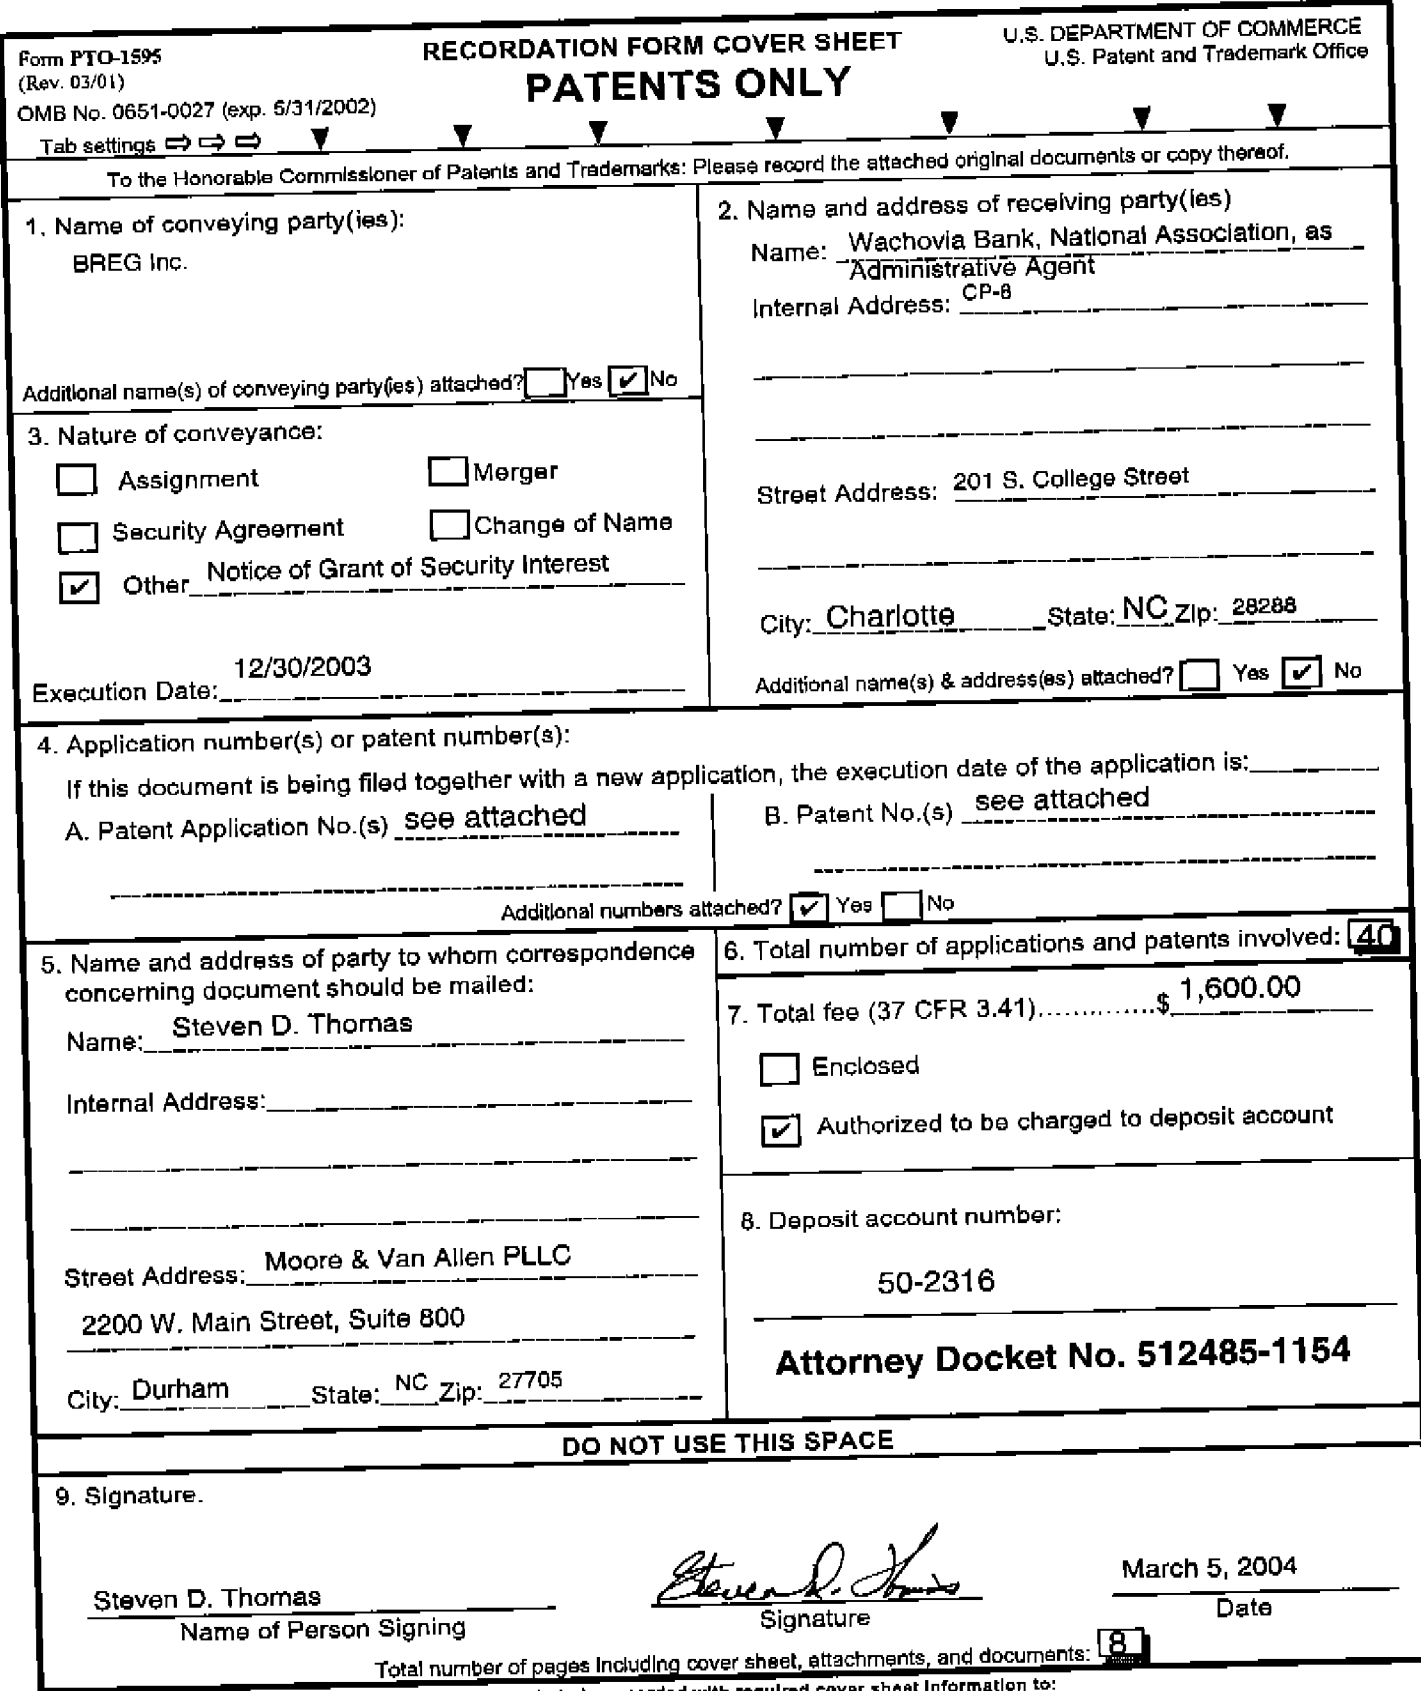 Form PTO-1595
(Rev. 03/01)
OMB No. 0651-0027 (exp. 5/31/2002)
Tab settings
RECORDATION FORM COVER SHEET
PATENTS ONLY
U.S. DEPARTMENT OF COMMERCE
U.S. Patent and Trademark Office
To the Honorable Commissioner of Patents and Trademarks: Please record the attached original documents or copy thereof.
1. Name of conveying party(ies):
BREG Inc.
Additional name(s) of conveying party(ies) attached? Yes ✔ No
2. Name and address of receiving party(ies)
Name: Wachovia Bank, National Association, as
Administrative Agent
Internal Address: CP-8
Street Address: 201 S. College Street
City: Charlotte State: NC Zip: 28288
Additional name(s) & address(es) attached? Yes ✔ No
3. Nature of conveyance:
Assignment Merger
Security Agreement Change of Name
✔ Other Notice of Grant of Security Interest
12/30/2003
Execution Date:
4. Application number(s) or patent number(s):
If this document is being filed together with a new application, the execution date of the application is:
A. Patent Application No.(s) see attached
B. Patent No.(s) see attached
Additional numbers attached? ✔ Yes No
5. Name and address of party to whom correspondence
concerning document should be mailed:
Name: Steven D. Thomas
Internal Address:
Street Address: Moore & Van Allen PLLC
2200 W. Main Street, Suite 800
City: Durham State: NC Zip: 27705
6. Total number of applications and patents involved: 40
7. Total fee (37 CFR 3.41)..............$ 1,600.00
Enclosed
✔ Authorized to be charged to deposit account
8. Deposit account number:
50-2316
Attorney Docket No. 512485-1154
DO NOT USE THIS SPACE
9. Signature.
Steven D. Thomas
Name of Person Signing
Steven D. Thomas
Signature
March 5, 2004
Date
Total number of pages including cover sheet, attachments, and documents: 8
with required cover sheet information to: